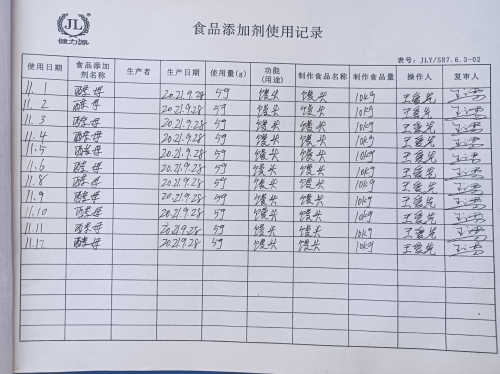 JL
健力源
食品添加剂使用记录
表号: JLY/SR7.6.3-02
使用日期 食品添加剂名称 生产者 生产日期 使用量(g) 功能(用途) 制作食品名称 制作食品量 操作人 复审人
11.1 酵母 2021.9.28 5g 馒头 馒头 10kg
11.2 酵母 2021.9.28 5g 馒头 馒头 10kg
11.3 酵母 2021.9.28 5g 馒头 馒头 10kg
11.4 酵母 2021.9.28 5g 馒头 馒头 10kg
11.5 酵母 2021.9.28 5g 馒头 馒头 10kg
11.6 酵母 2021.9.28 5g 馒头 馒头 10kg
11.8 酵母 2021.9.28 5g 馒头 馒头 10kg
11.9 酵母 2021.9.28 5g 馒头 馒头 10kg
11.10 酵母 2021.9.28 5g 馒头 馒头 10kg
11.11 酵母 2021.9.28 5g 馒头 馒头 10kg
11.12 酵母 2021.9.28 5g 馒头 馒头 10kg